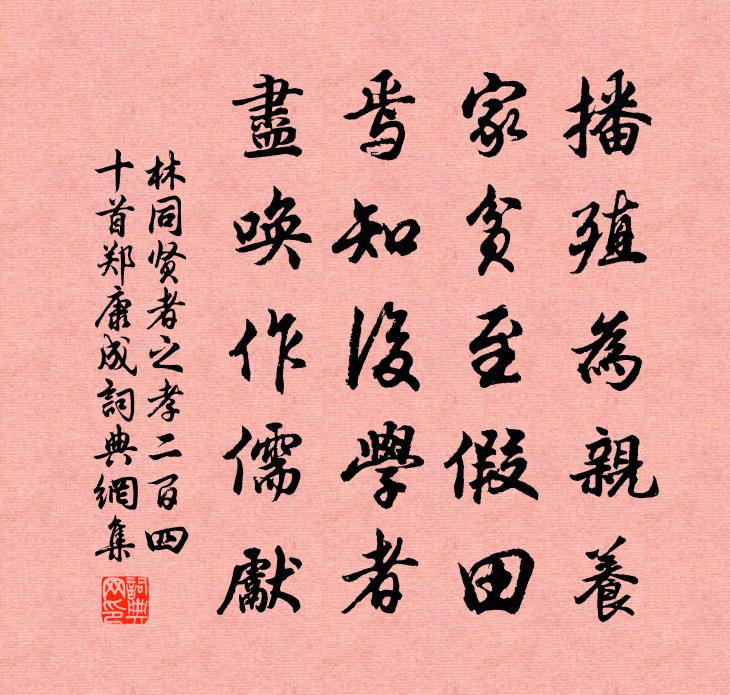 播殖為親養
家貧至假田
焉知後學者
盡喚作儒獻
林同贤者之孝二百四
十首郑康成詞典網集
詞典
网印